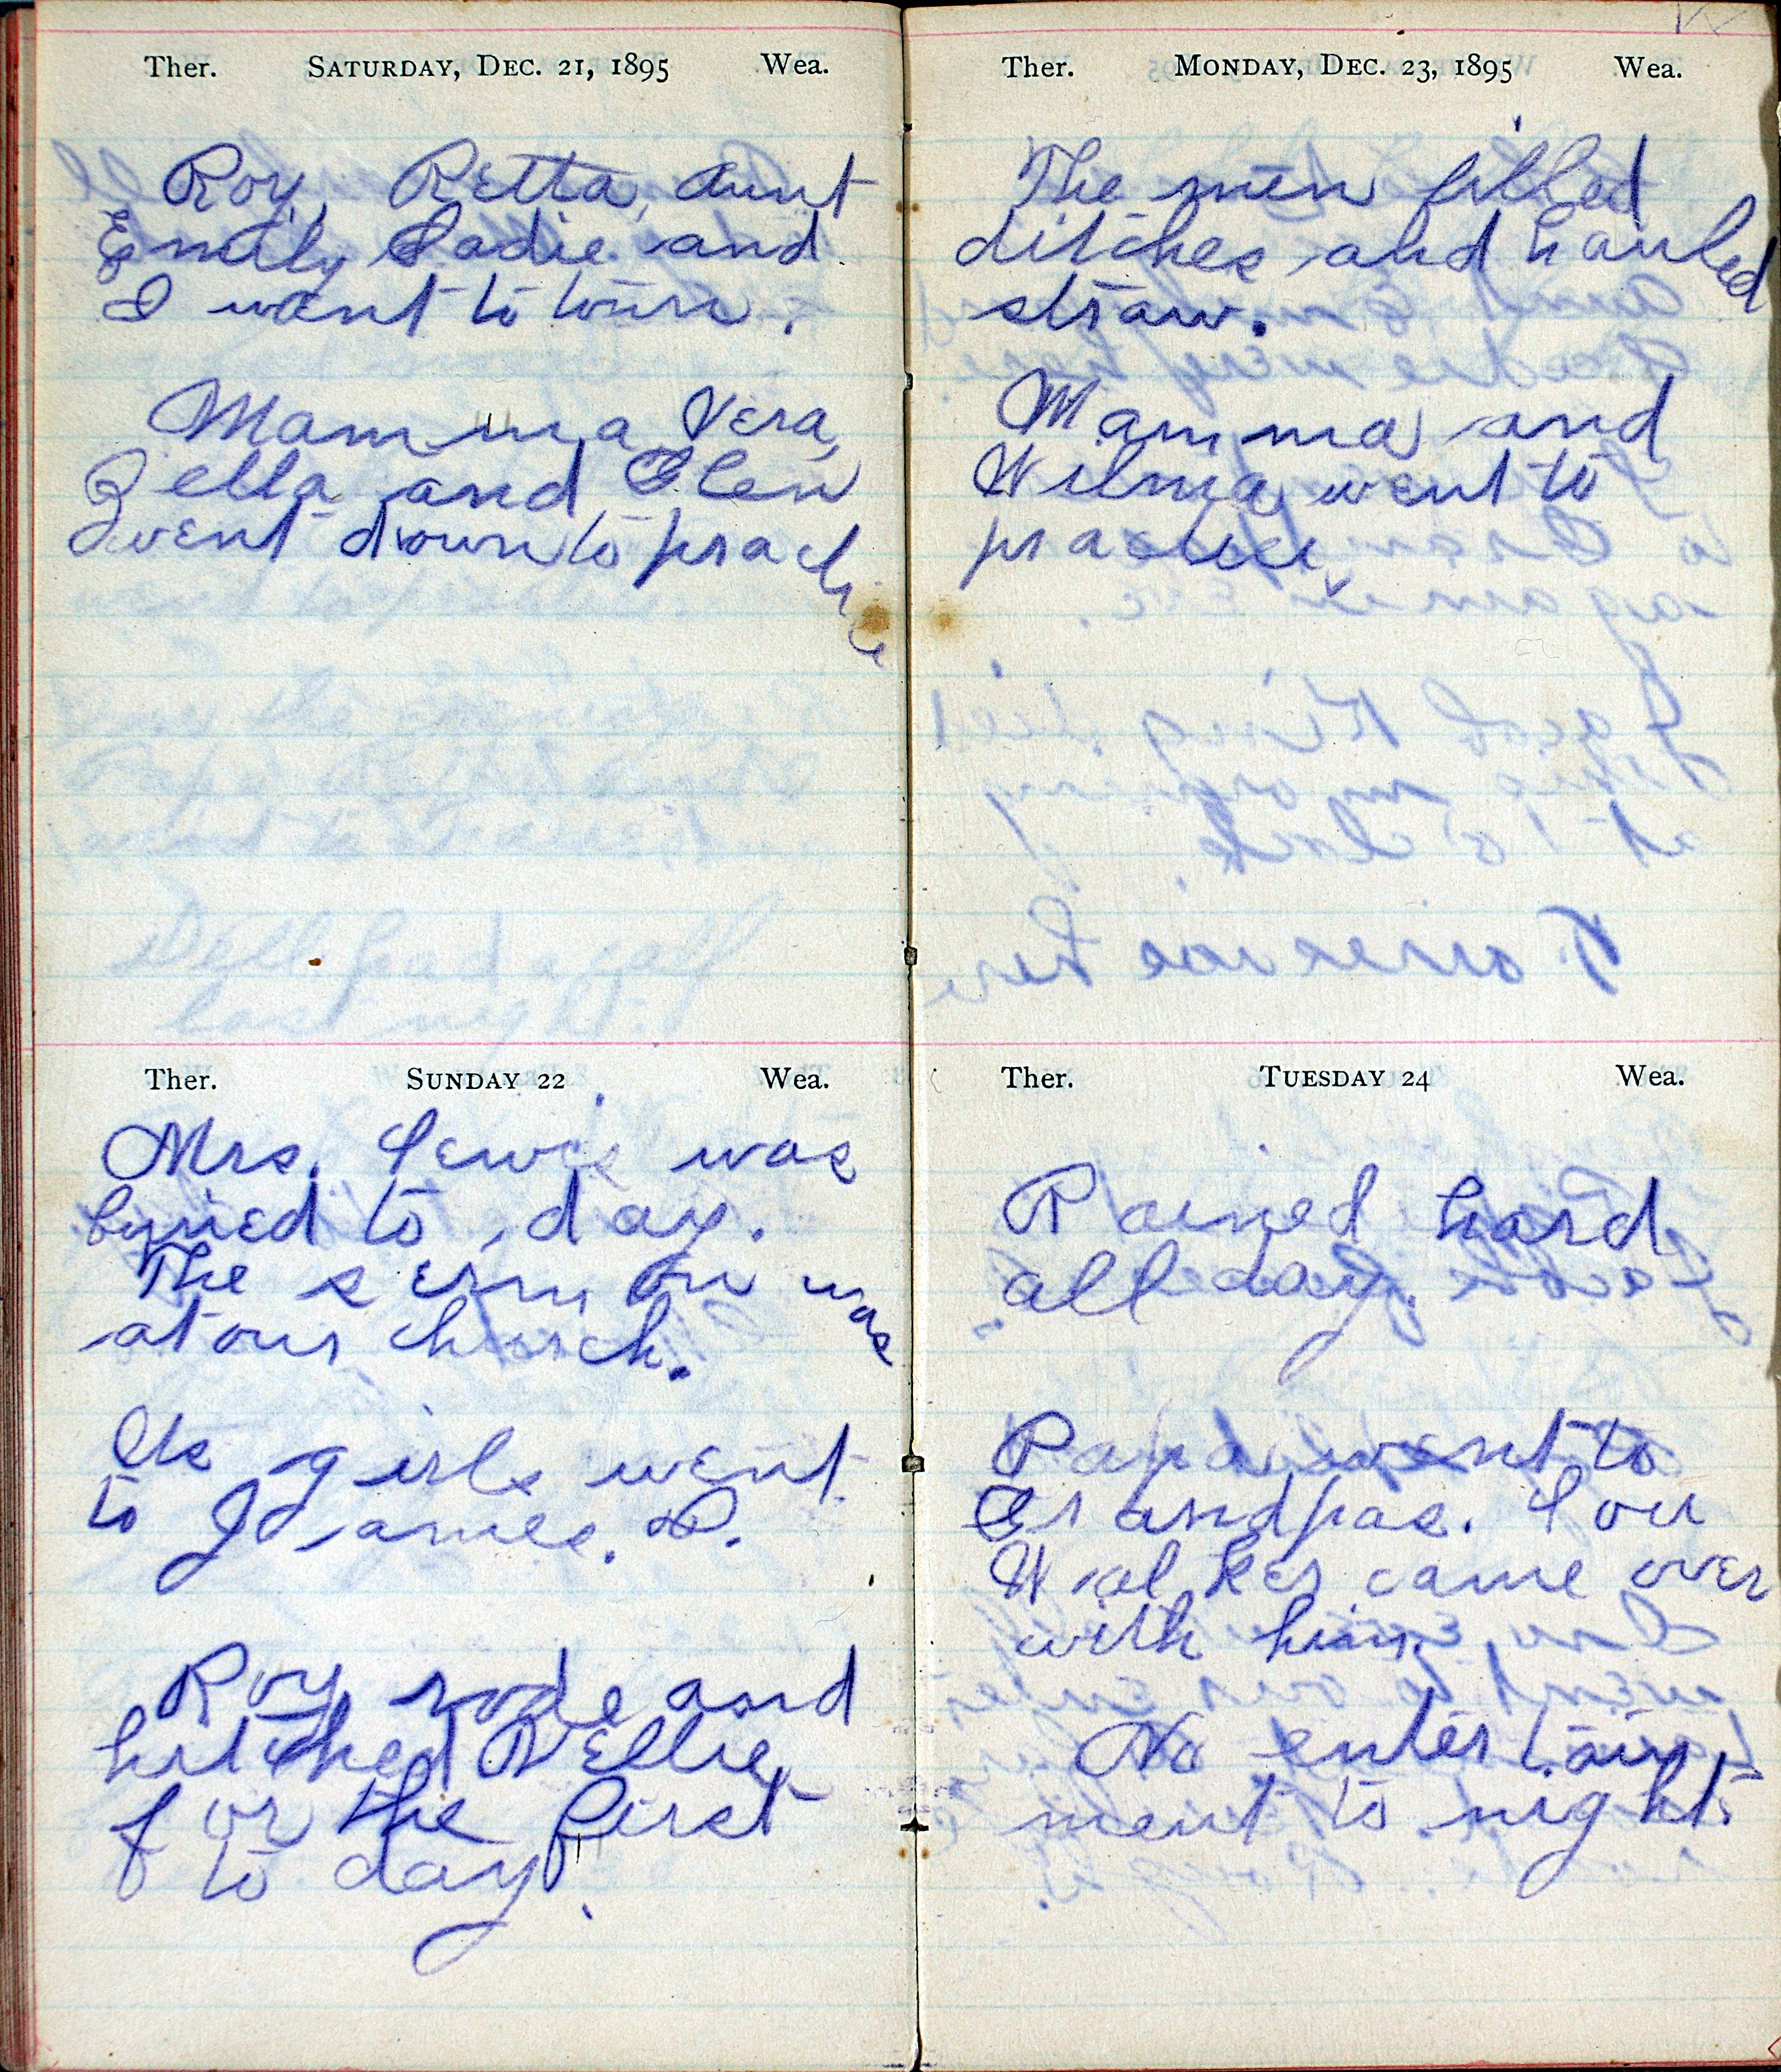 Ther. SATURDAY, DEC. 21, 1895 Wea.
Roy, Retta, Aunt
Emily Sadie and
I want to town.
Mamma, Vera,
Zella and Glen
went down to practice
Ther. SUNDAY 22 Wea.
Mrs. Lewis was
buried to day.
The sermon was
at our church.
Us girls went
to James. D.
Roy rode and
hitched Nellie
for the first
to day.
Ther. MONDAY, DEC. 23, 1895 Wea.
The men filled
ditches and hauled
straw.
Mamma and
Wilma went to
practice
Ther. TUESDAY 24 Wea.
Rained hard
all day.
Papa went to
Grandpas. Lou
Walker came over
with him.
No entertain
ment to night.